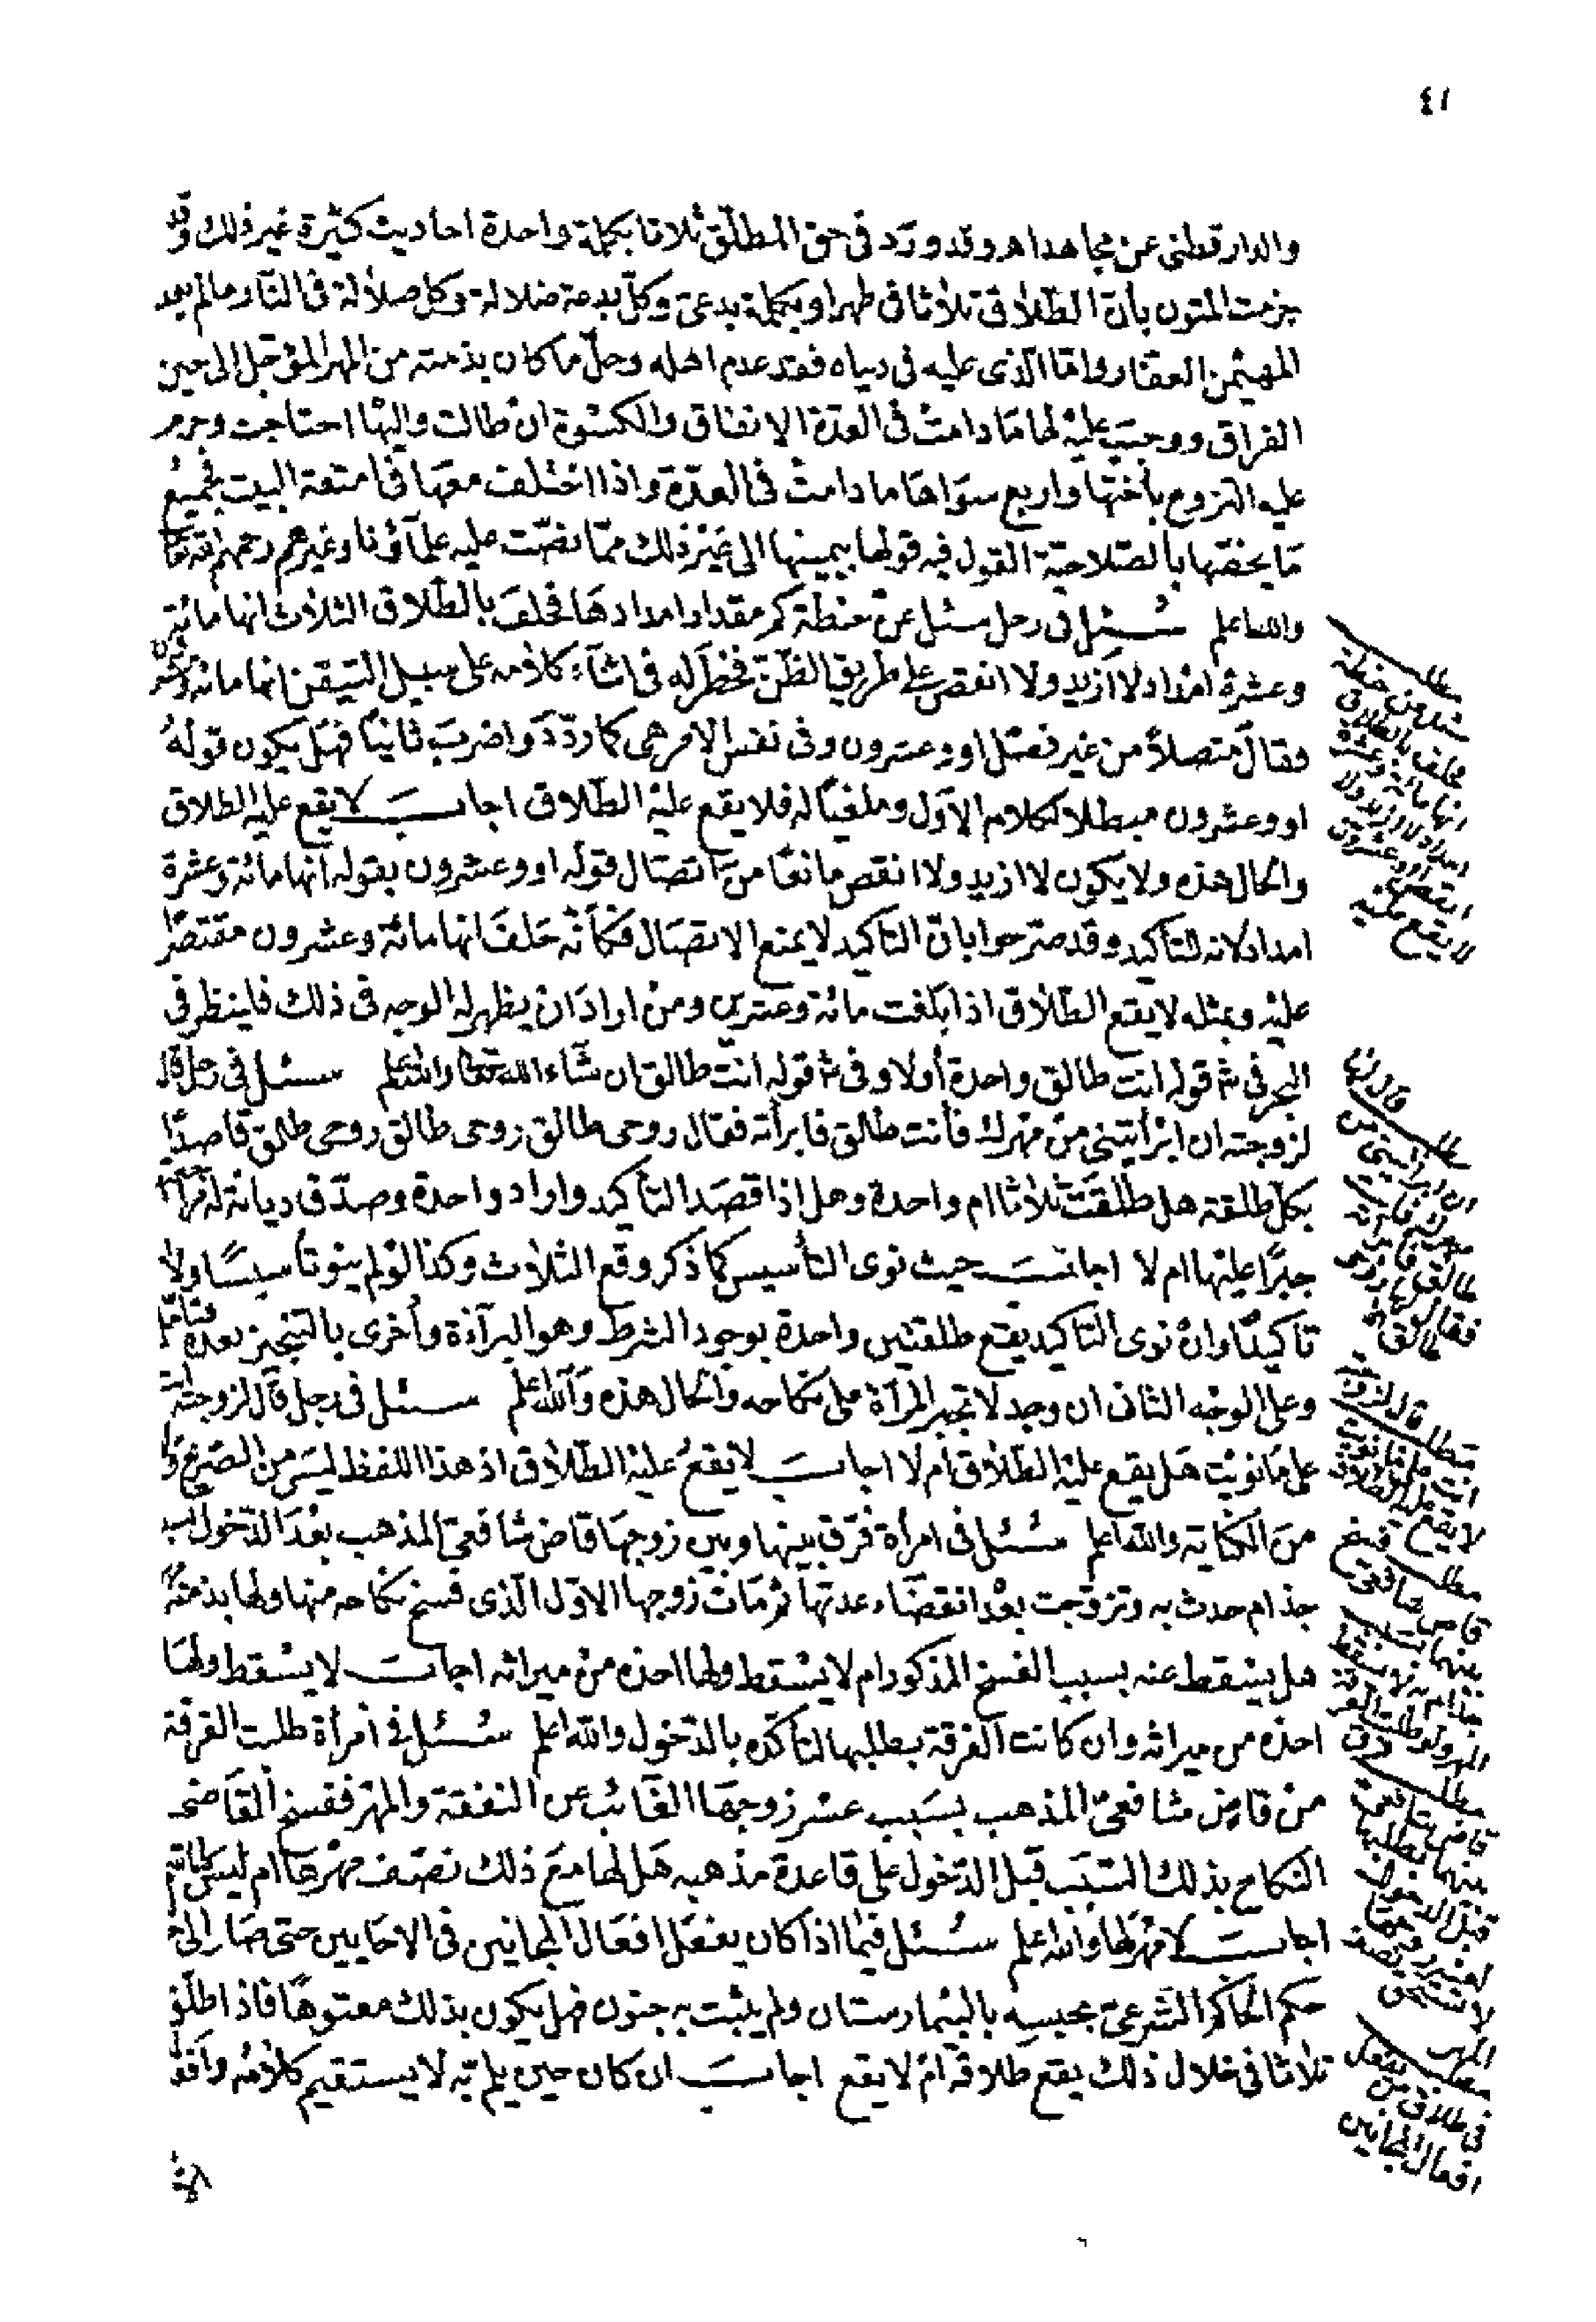 ٤١
والدارقطني عن مجاهد اهـ وقد ورد في حق المطلق ثلاثا بكلمة واحدة احاديث كثيرة غير ذلك وقد
جزمت المتون بأن الطلاق ثلاثا في طهر او بكلمة بدعى وكل بدعة ضلالة وكل ضلالة في النار مالم يعد
المهيمن الغفار واما الذى عليه في دنياه فقد عدم اهله وحل ما كان بذمته من المهر المؤجل الى حين
الفراق ووجب عليه لها ما دامت في العدة الانفاق والكسوة ان طالت واليها احتاجت وحرم
عليه التزوج بأختها واربع سواها ما دامت في العدة واذا اختلف معها في امتعة البيت فجميع
ما يختص بها بالصلاحية القول فيه قولها بيمينها الى غير ذلك مما نصت عليه علماؤنا وغيرهم رحمهم الله تعالى
والله اعلم سئل في رجل سئل عن حنطة كم مقدار امدادها فحلف بالطلاق الثلاث انها مائة
وعشرة امداد لا ازيد ولا انقص على طريق الظن فخطر له في اثناء كلامه على سبيل التيقن انها مائة وعشرون
فقال متصلا من غير فصل او وعشرون وفى نفس الامر هي كما ردد واضرب ثانيا فهل يكون قوله
او وعشرون مبطلا لكلام الاول وملغيا له فلا يقع عليه الطلاق اجاب لا يقع عليه الطلاق
والحال هذه ولا يكون لا ازيد ولا انقص مانعا من اتصال قوله او وعشرون بقوله انها مائة وعشرة
امداد لانه للتاكيد وقد صرحوا بان التاكيد لا يمنع الاتصال فكأنه حلف انها مائة وعشرون مقتصرا
عليه وبمثله لا يقع الطلاق اذا بلغت مائة وعشرين ومن اراد ان يظهر له الوجه في ذلك فلينظر في
البحر في شرح قوله انت طالق واحدة أولا وفى شرح قوله انت طالق ان شاء الله تعالى والله اعلم سئل في رجل قال
لزوجته ان ابرأتيني من مهرك فأنت طالق فابرأته فقال روحى طالق روحى طالق روحى طالق قاصدا
بكل طلقة هل طلقت ثلاثا ام واحدة وهل اذا قصد التأكيد واراد واحدة وصدق ديانة له
جبرا عليها ام لا اجاب حيث نوى التأسيس كما ذكر وقع الثلاث وكذا لو لم ينو تأسيسا ولا
تاكيدا وان نوى التاكيد يقع طلقتين واحدة بوجود الشرط وهو البرآءة وأخرى بالتنجيز بعده فتأمل
وعلى الوجه الثانى ان وجد لا تجبر المرأة على نكاحه والحال هذه والله اعلم سئل في رجل قال لزوجته انت
على ما نويت هل يقع عليه الطلاق أم لا اجاب لا يقع عليه الطلاق اذ هذا اللفظ ليس من الصريح ولا
من الكناية والله اعلم سئل في امرأة فرق بينها وبين زوجها قاض شافعى المذهب بعد الدخول بسبب
جذام حدث به وتزوجت بعد انقضاء عدتها ثم مات زوجها الاول الذى فسخ نكاحه منها ولها بذمته
هل يسقط عنه بسبب الفسخ المذكور ام لا يسقط ولها اخذه من ميراثه اجاب لا يسقط ولها
اخذه من ميراثه وان كانت الفرقة بطلبها لتاكده بالدخول والله اعلم سئل في امرأة طلبت الفرقة
من قاض شافعى المذهب بسبب عسر زوجها الغائب عن النفقة والمهر ففسخ القاضى
النكاح بذلك السبب قبل الدخول على قاعدة مذهبه هل لها مع ذلك نصف مهرها ام ليس لها
اجاب لا مهر لها والله اعلم سئل فيما اذا كان يفعل افعال المجانين في الاحايين حتى صار الى
حكم الحاكم الشرعى بحبسه بالبيمارستان ولم يثبت به جنون فهل يكون بذلك معتوها فاذا طلق
ثلاثا في خلال ذلك يقع طلاقه أم لا يقع اجاب ان كان حين يلم به لا يستقيم كلامه وافعاله
مطلب
حلف بالطلاق
انها مائة وعشرة
امداد لا ازيد ولا
انقص او وعشرون
لا يقع عليه
مطلب قال لزوجته
ان ابرأتيني من
مهرك
طالق فابرأته
فقال روحى
طالق
مطلب قال لزوجته
انت على ما نويت
لا يقع عليه الطلاق
مطلب فسخ
قاض شافعى
المهر ولو طلبت الفرقة
مطلب فرق
قاض شافعى
بينهما بطلبها
قبل الدخول
لا تستحق نصف
المهر
مطلب
في طلاق من يفعل
افعال المجانين